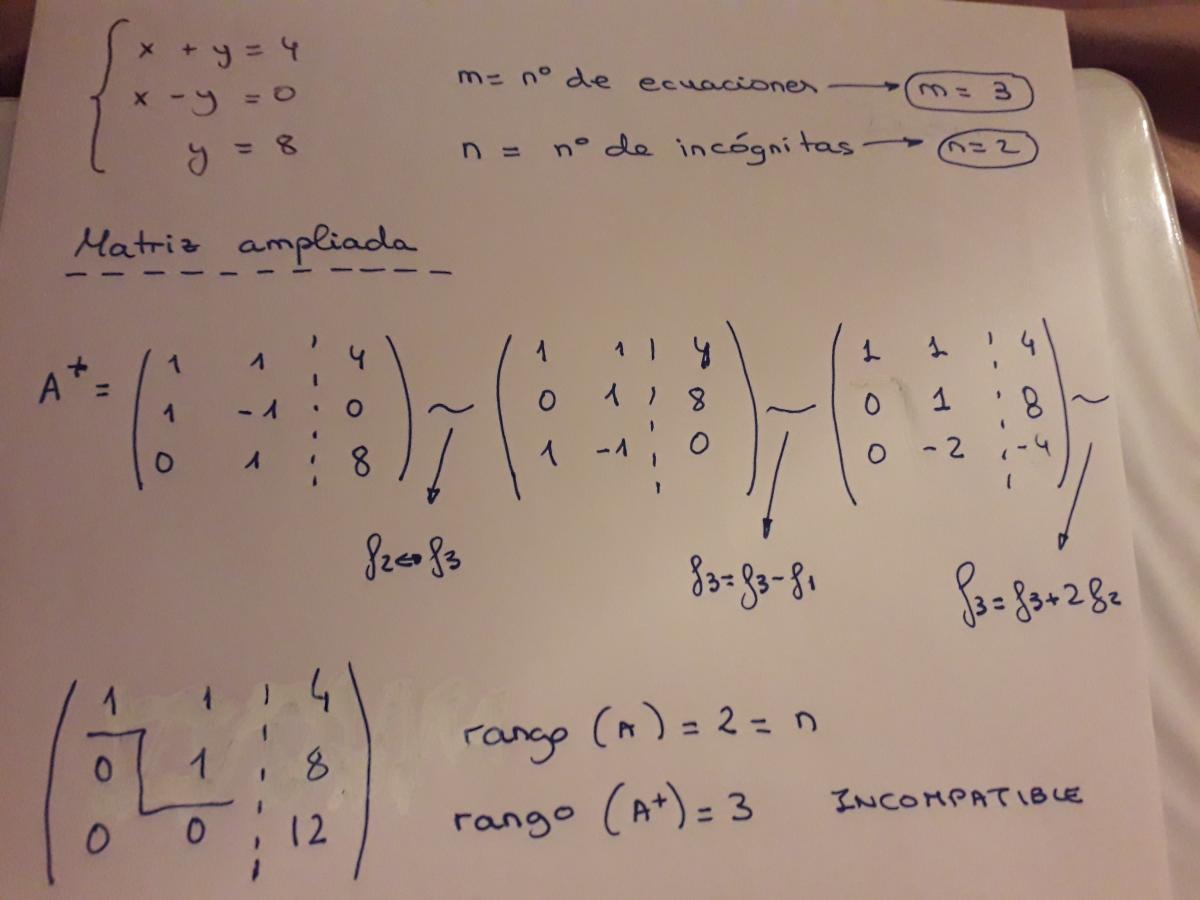 x + y = 4
x - y = 0
y = 8
m = nº de ecuaciones → m = 3
n = nº de incógnitas → n = 2
Matriz ampliada
A⁺ = ( 1 1 ¦ 4 ) ~ ( 1 1 ¦ 4 ) ~ ( 1 1 ¦ 4 ) ~
( 1 -1 ¦ 0 ) ( 0 1 ¦ 8 ) ( 0 1 ¦ 8 )
( 0 1 ¦ 8 ) ( 1 -1 ¦ 0 ) ( 0 -2 ¦ -4 )
f2 ↔ f3 f3 = f3 - f1 f3 = f3 + 2 f2
( 1 1 ¦ 4 )
( 0 1 ¦ 8 )
( 0 0 ¦ 12 )
rango (A) = 2 = n
rango (A⁺) = 3 INCOMPATIBLE